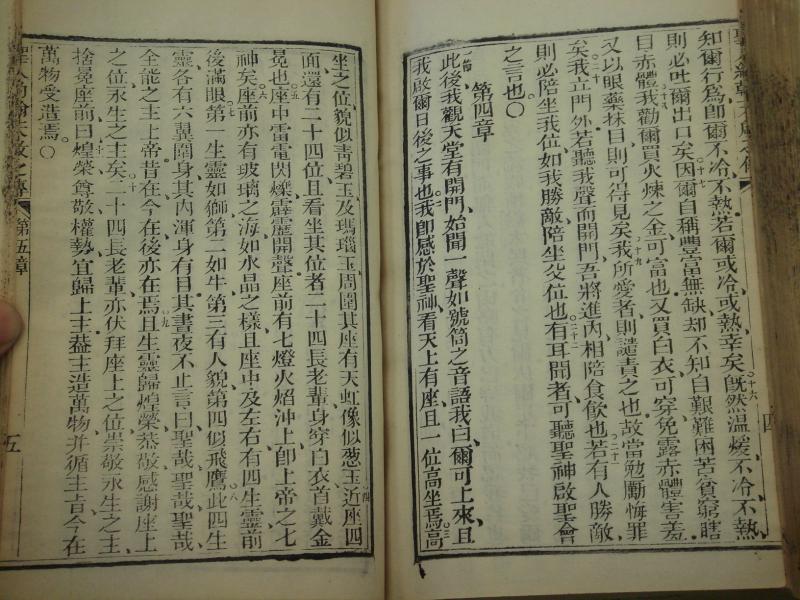 知爾行爲卽爾不冷不熱若爾或冷或熱幸矣旣然温煖不冷不熱
則必吐爾出口矣因爾自稱豐富無缺却不知自艱難困苦貧窮瞎
目赤體我勸爾買火煉之金可富也又買白衣可穿免露赤體害羞
又以眼藥抹目則可得見矣我所愛者則譴責之也故當勉勵悔罪
矣我立門外若聽我聲而開門吾將進內相陪食飲也若有人勝敵
則必陪坐我位如我勝敵陪坐父位也有耳聞者可聽聖神啟聖會
之言也
第四章
此後我觀天堂有開門始聞一聲如號筒之音語我曰爾可上來且
我啟爾日後之事也我卽感於聖神看天上有座且一位高坐焉高
坐之位貌似靑碧玉及瑪瑙玉周圍其座有天虹像似葱玉近座四
面還有二十四位且看坐其位者二十四長老輩身穿白衣首戴金
冕也座中雷電閃爍霹靂開聲座前有七燈火焰沖上卽上帝之七
神矣座前亦有玻璃之海如水晶之樣且座中及左右有四生靈前
後滿眼第一生靈如獅第二如牛第三有人貌第四似飛鷹此四生
靈各有六翼圍身其內渾身有目其晝夜不止言曰聖哉聖哉聖哉
全能之主上帝昔在今在後亦在焉且生靈歸煌榮恭敬感謝座上
之位永生之主矣二十四長老輩亦伏拜座上之位崇敬永生之主
捨冕座前曰煌榮尊敬權勢宜歸上主葢主造萬物并循主旨今在
萬物受造焉
第五章
五